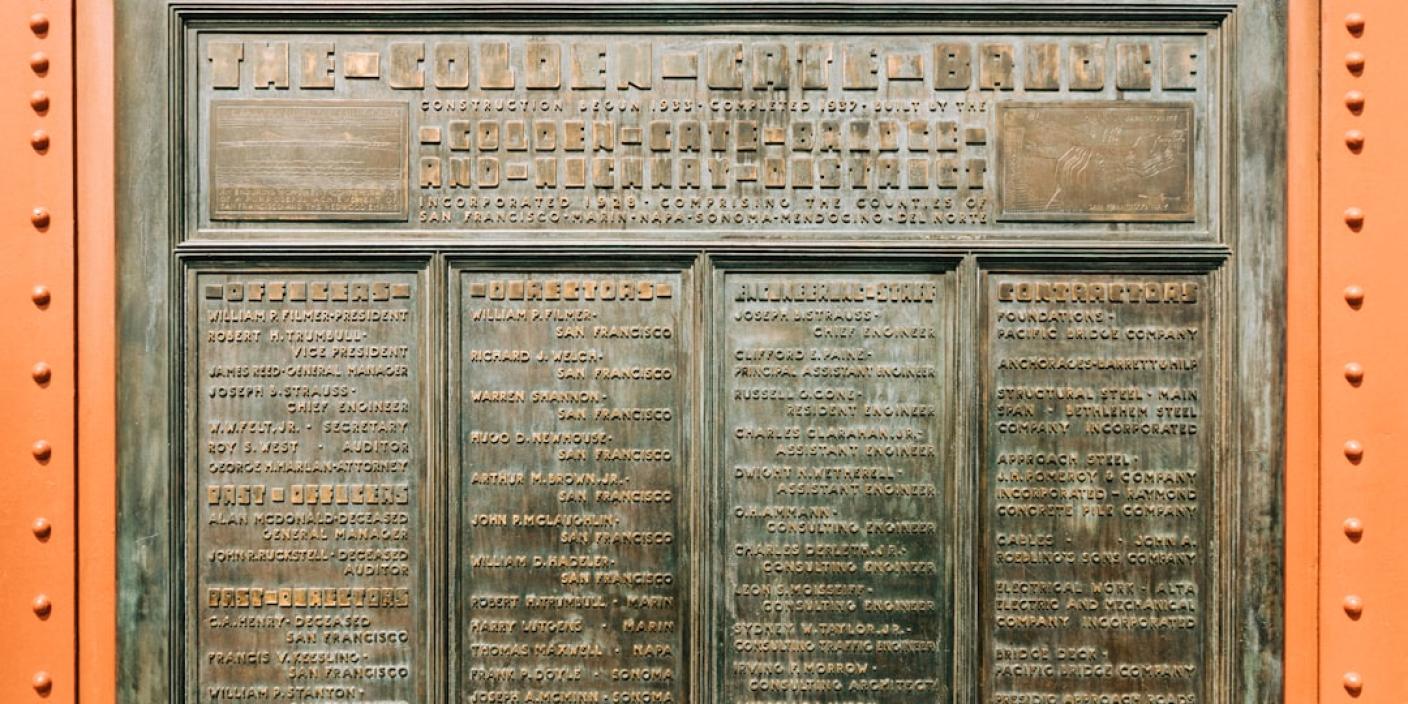 THE-GOLDEN-GATE-BRIDGE
CONSTRUCTION BEGUN 1933·COMPLETED 1937·BUILT BY THE
-GOLDEN-GATE-BRIDGE-
AND-HIGHWAY-DISTRICT
INCORPORATED 1928·COMPRISING THE COUNTIES OF
SAN FRANCISCO·MARIN·NAPA·SONOMA·MENDOCINO·DEL NORTE
-OFFICERS-
WILLIAM P. FILMER·PRESIDENT
ROBERT H. TRUMBULL·
VICE PRESIDENT
JAMES REED·GENERAL MANAGER
JOSEPH B. STRAUSS·
CHIEF ENGINEER
W.W. FELT, JR. · SECRETARY
ROY S. WEST AUDITOR
GEORGE H. HARLAN·ATTORNEY
PAST-OFFICERS
ALAN MCDONALD·DECEASED
GENERAL MANAGER
JOHN R. RUCKSTELL·DECEASED
AUDITOR
PAST-DIRECTORS
C.A. HENRY·DECEASED
SAN FRANCISCO
FRANCIS V. KEESLING·
SAN FRANCISCO
WILLIAM P. STANTON·
-DIRECTORS-
WILLIAM P. FILMER·
SAN FRANCISCO
RICHARD J. WELCH·
SAN FRANCISCO
WARREN SHANNON·
SAN FRANCISCO
HUGO D. NEWHOUSE·
SAN FRANCISCO
ARTHUR M. BROWN, JR.·
SAN FRANCISCO
JOHN P. MCLAUGHLIN·
SAN FRANCISCO
WILLIAM D. HADELER·
SAN FRANCISCO
ROBERT H. TRUMBULL · MARIN
HARRY LUTGENS · MARIN
THOMAS MAXWELL · NAPA
FRANK P. DOYLE · SONOMA
JOSEPH A. MCMINN · SONOMA
ENGINEERING-STAFF
JOSEPH B. STRAUSS·
CHIEF ENGINEER
CLIFFORD E. PAINE·
PRINCIPAL ASSISTANT ENGINEER
RUSSELL G. CONE·
RESIDENT ENGINEER
CHARLES CLARAHAN, JR.·
ASSISTANT ENGINEER
DWIGHT N. WETHERELL·
ASSISTANT ENGINEER
O.H. AMMANN·
CONSULTING ENGINEER
CHARLES DERLETH, JR.·
CONSULTING ENGINEER
LEON S. MOISSEIFF·
CONSULTING ENGINEER
SYDNEY W. TAYLOR, JR.·
CONSULTING TRAFFIC ENGINEER
IRVING F. MORROW·
CONSULTING ARCHITECT
CONTRACTORS
FOUNDATIONS·
PACIFIC BRIDGE COMPANY
ANCHORAGES·BARRETT & HILP
STRUCTURAL STEEL · MAIN
SPAN · BETHLEHEM STEEL
COMPANY INCORPORATED
APPROACH STEEL·
J.H. POMEROY & COMPANY
INCORPORATED – RAYMOND
CONCRETE PILE COMPANY
CABLES · · JOHN A.
ROEBLING'S SONS COMPANY
ELECTRICAL WORK · ALTA
ELECTRIC AND MECHANICAL
COMPANY INCORPORATED
BRIDGE DECK·
PACIFIC BRIDGE COMPANY
PRESIDIO APPROACH ROADS